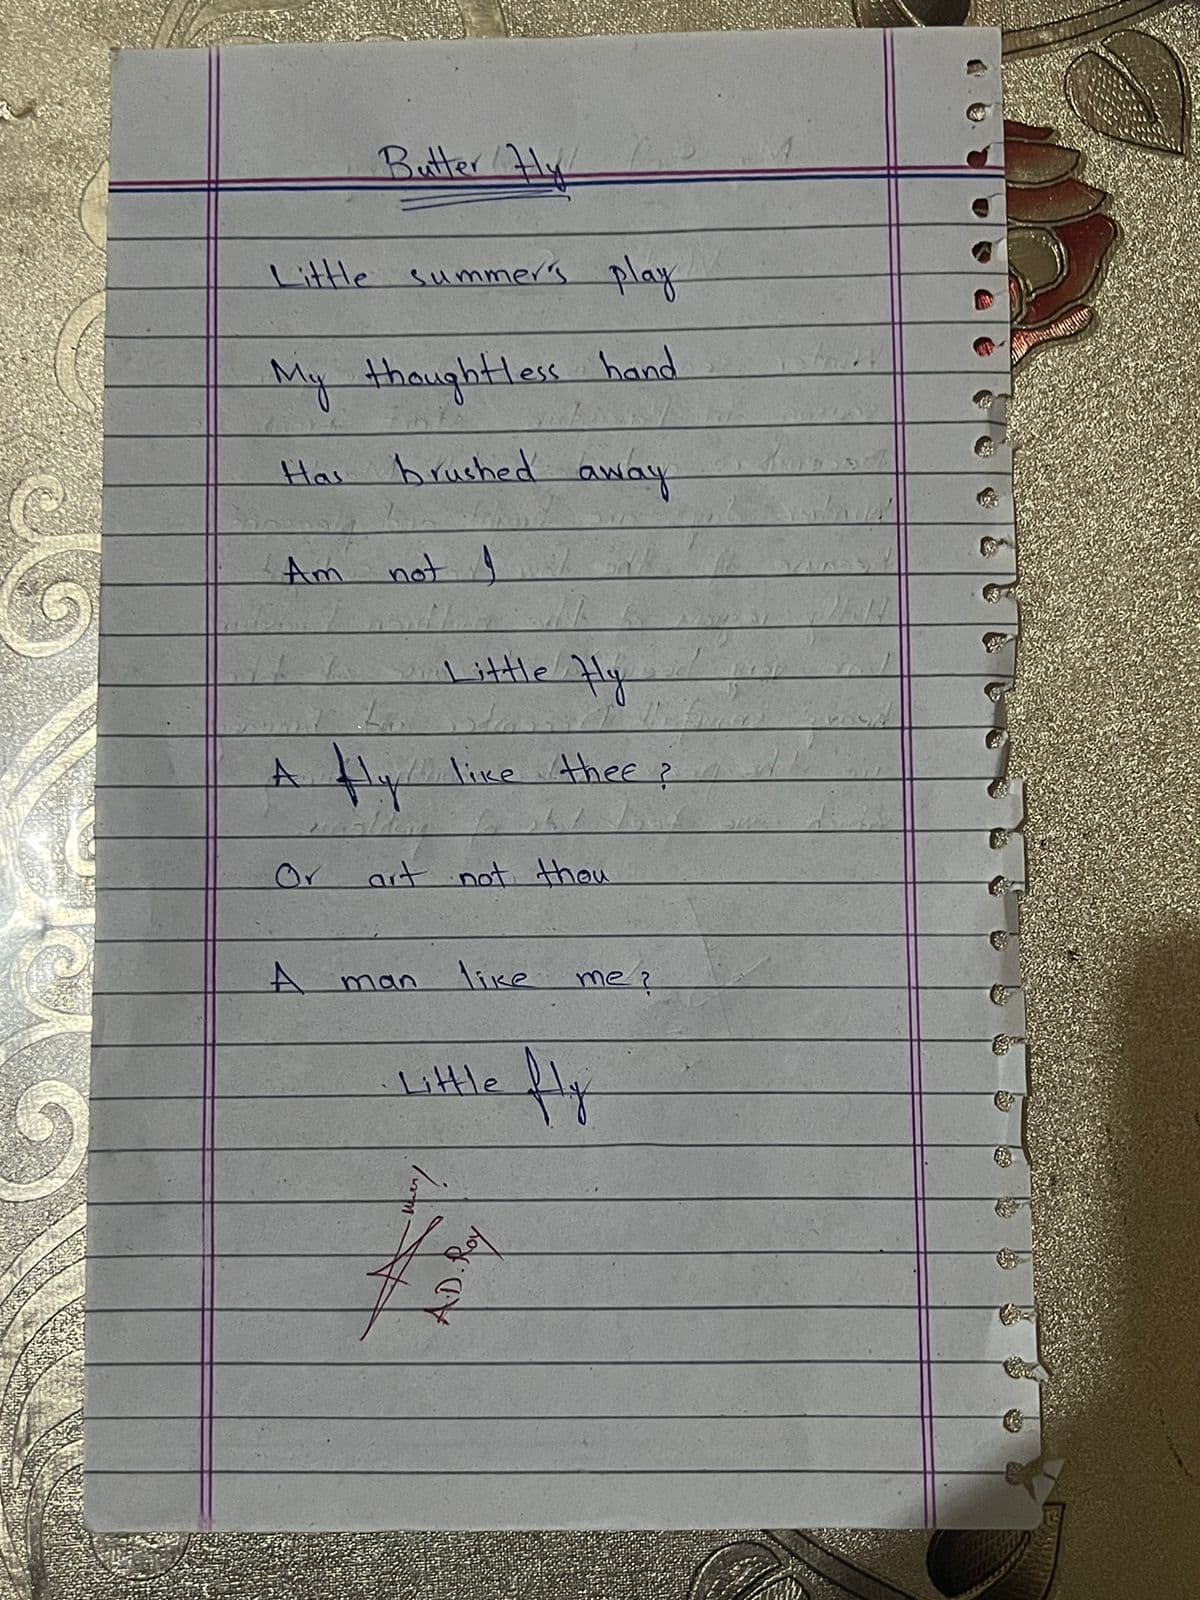 Butter fly
Little summer's play
My thoughtless hand
Has brushed away
Am not I
Little fly
A fly like thee?
Or art not thou
A man like me?
Little fly
A.D. Roy